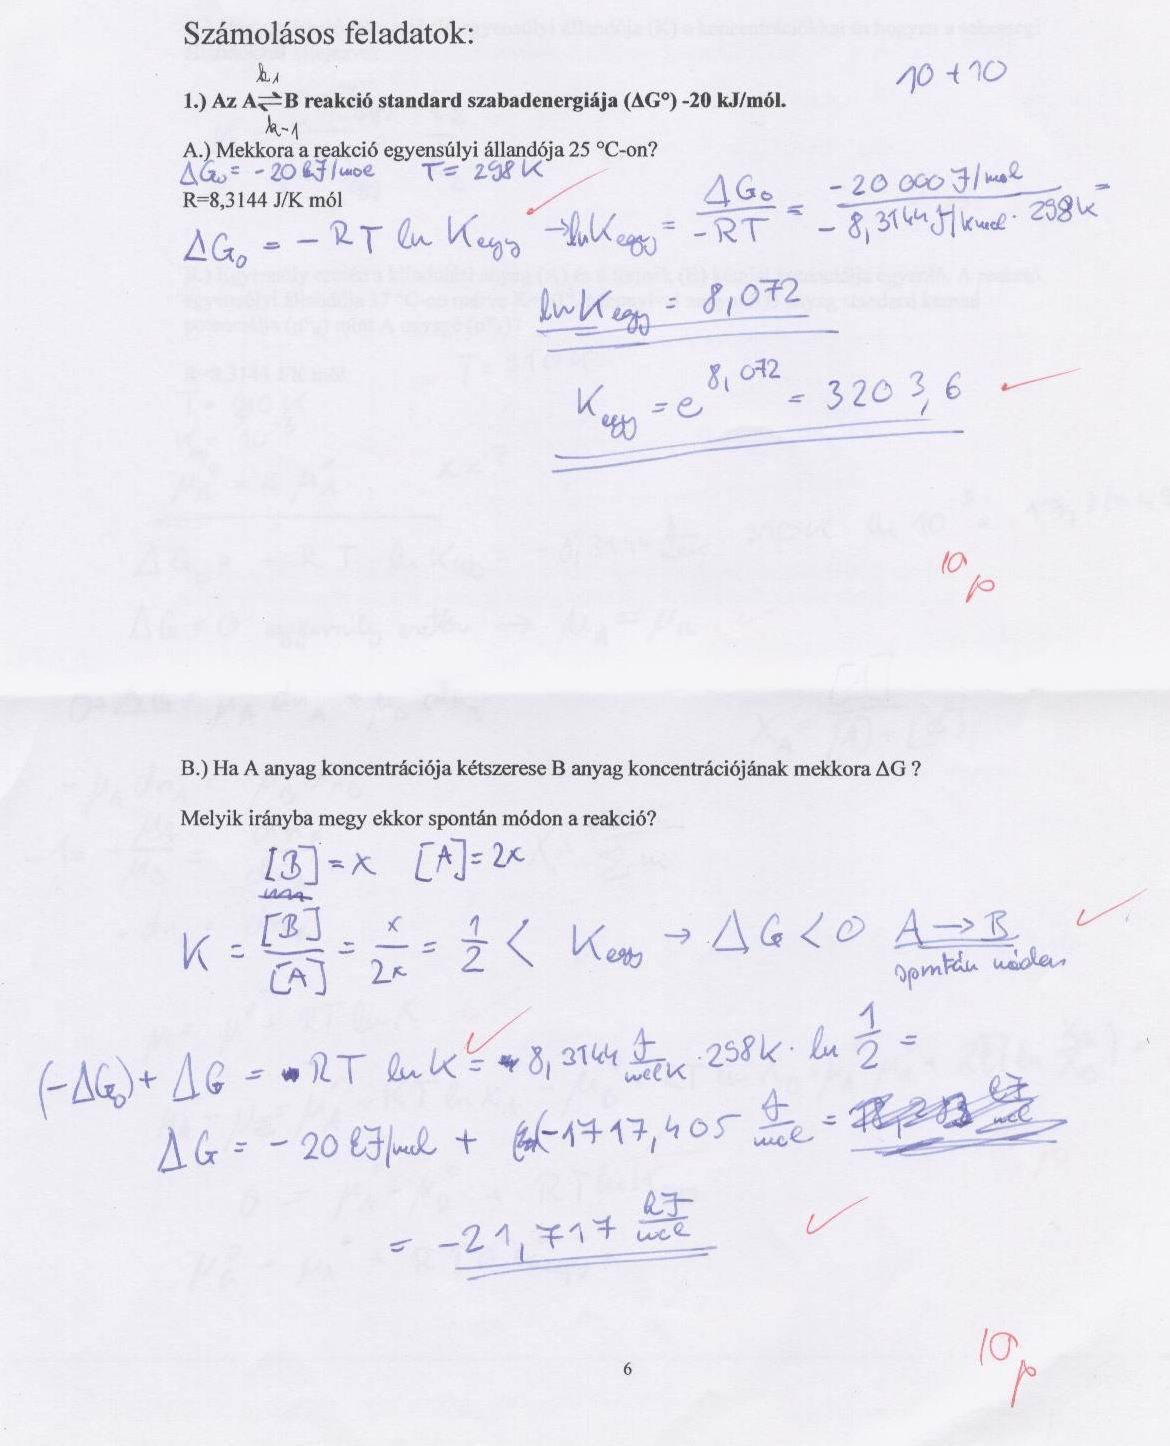 Számolásos feladatok:
10 + 10
k₁
1.) Az A⇌B reakció standard szabadenergiája (ΔG°) -20 kJ/mól.
k-1
A.) Mekkora a reakció egyensúlyi állandója 25 °C-on?
ΔG₀ = -20 kJ/mol T = 298 K
R=8,3144 J/K mól
ΔG₀ = - RT ln Kegy → ln Kegy = ΔG₀ / -RT = -20 000 J/mol / -8,3144 J/Kmol · 298K =
ln Kegy = 8,072
Kegy = e^8,072 = 3203,6
10p
B.) Ha A anyag koncentrációja kétszerese B anyag koncentrációjának mekkora ΔG ?
Melyik irányba megy ekkor spontán módon a reakció?
[B] = x [A] = 2x
K = [B]/[A] = x/2x = 1/2 < Kegy → ΔG < 0 A → B
spontán módon
(-ΔG₀) + ΔG = RT ln K = 8,3144 J/molK · 298K · ln 1/2 =
ΔG = - 20 kJ/mol + (-1717,405 J/mol =
= -21,717 kJ/mol
10p
6